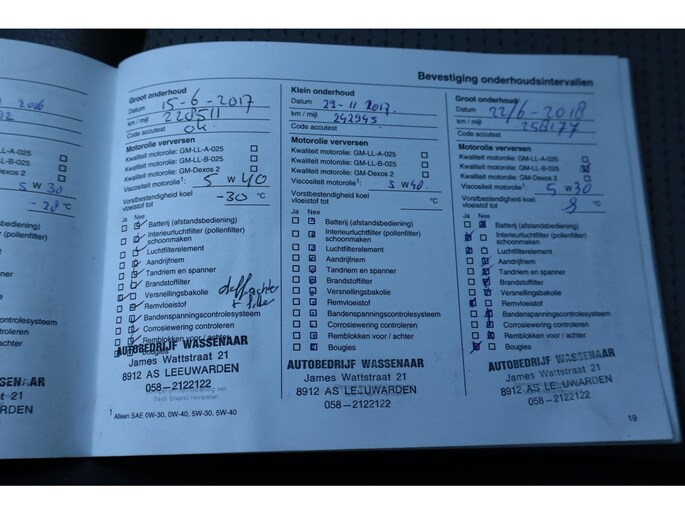 Bevestiging onderhoudsintervallen
Groot onderhoud
Datum 15-6-2017
km / mijl 228511
Code accutest ok
Motorolie verversen
Kwaliteit motorolie: GM-LL-A-025
Kwaliteit motorolie: GM-LL-B-025
Kwaliteit motorolie: GM-Dexos 2
Viscositeit motorolie¹: 5 W 40
Vorstbestendigheid koelvloeistof tot -30 °C
Ja Nee
Batterij (afstandsbediening)
Interieurluchtfilter (pollenfilter) schoonmaken
Luchtfilterelement
Aandrijfriem
Tandriem en spanner
Brandstoffilter
Versnellingsbakolie
Remvloeistof
Bandenspanningscontrolesysteem
Corrosiewering controleren
Remblokken voor / achter
Bougies
AUTOBEDRIJF WASSENAAR
James Wattstraat 21
8912 AS LEEUWARDEN
058-2122122
¹ Alleen SAE 0W-30, 0W-40, 5W-30, 5W-40
Klein onderhoud
Datum 29-11 2017.
km / mijl 242945
Code accutest
Motorolie verversen
Kwaliteit motorolie: GM-LL-A-025
Kwaliteit motorolie: GM-LL-B-025
Kwaliteit motorolie: GM-Dexos 2
Viscositeit motorolie¹: 5 W 40
Vorstbestendigheid koelvloeistof tot °C
Ja Nee
Batterij (afstandsbediening)
Interieurluchtfilter (pollenfilter) schoonmaken
Luchtfilterelement
Aandrijfriem
Tandriem en spanner
Brandstoffilter
Versnellingsbakolie
Remvloeistof
Bandenspanningscontrolesysteem
Corrosiewering controleren
Remblokken voor / achter
Bougies
AUTOBEDRIJF WASSENAAR
James Wattstraat 21
8912 AS LEEUWARDEN
058-2122122
Groot onderhoud
Datum 22/6-2018
km / mijl 258177
Code accutest
Motorolie verversen
Kwaliteit motorolie: GM-LL-A-025
Kwaliteit motorolie: GM-LL-B-025
Kwaliteit motorolie: GM-Dexos 2
Viscositeit motorolie¹: 5 W 30
Vorstbestendigheid koel vloeistof tot °C
Ja Nee
Batterij (afstandsbediening)
Interieurluchtfilter (pollenfilter) schoonmaken
Luchtfilterelement
Aandrijfriem
Tandriem en spanner
Brandstoffilter
Versnellingsbakolie
Remvloeistof
Bandenspanningscontrolesysteem
Corrosiewering controleren
Remblokken voor / achter
Bougies
AUTOBEDRIJF WASSENAAR
James Wattstraat 21
8912 AS LEEUWARDEN
058-2122122
19